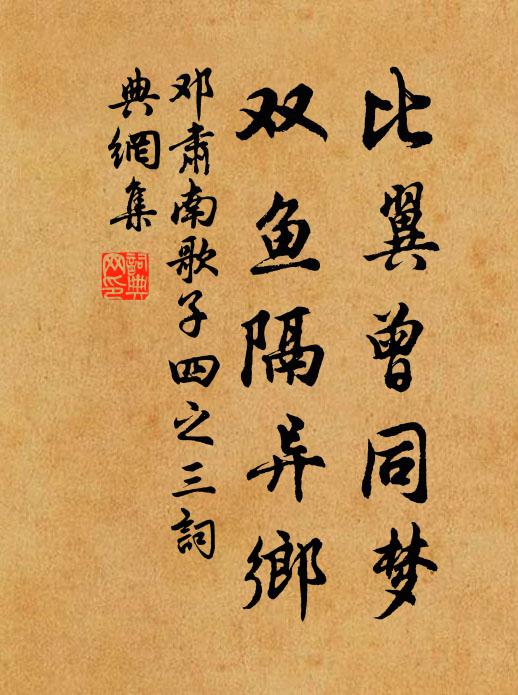 比翼曾同梦
双鱼隔异鄉
邓肃南歌子四之三詞
典網集
詞典网印